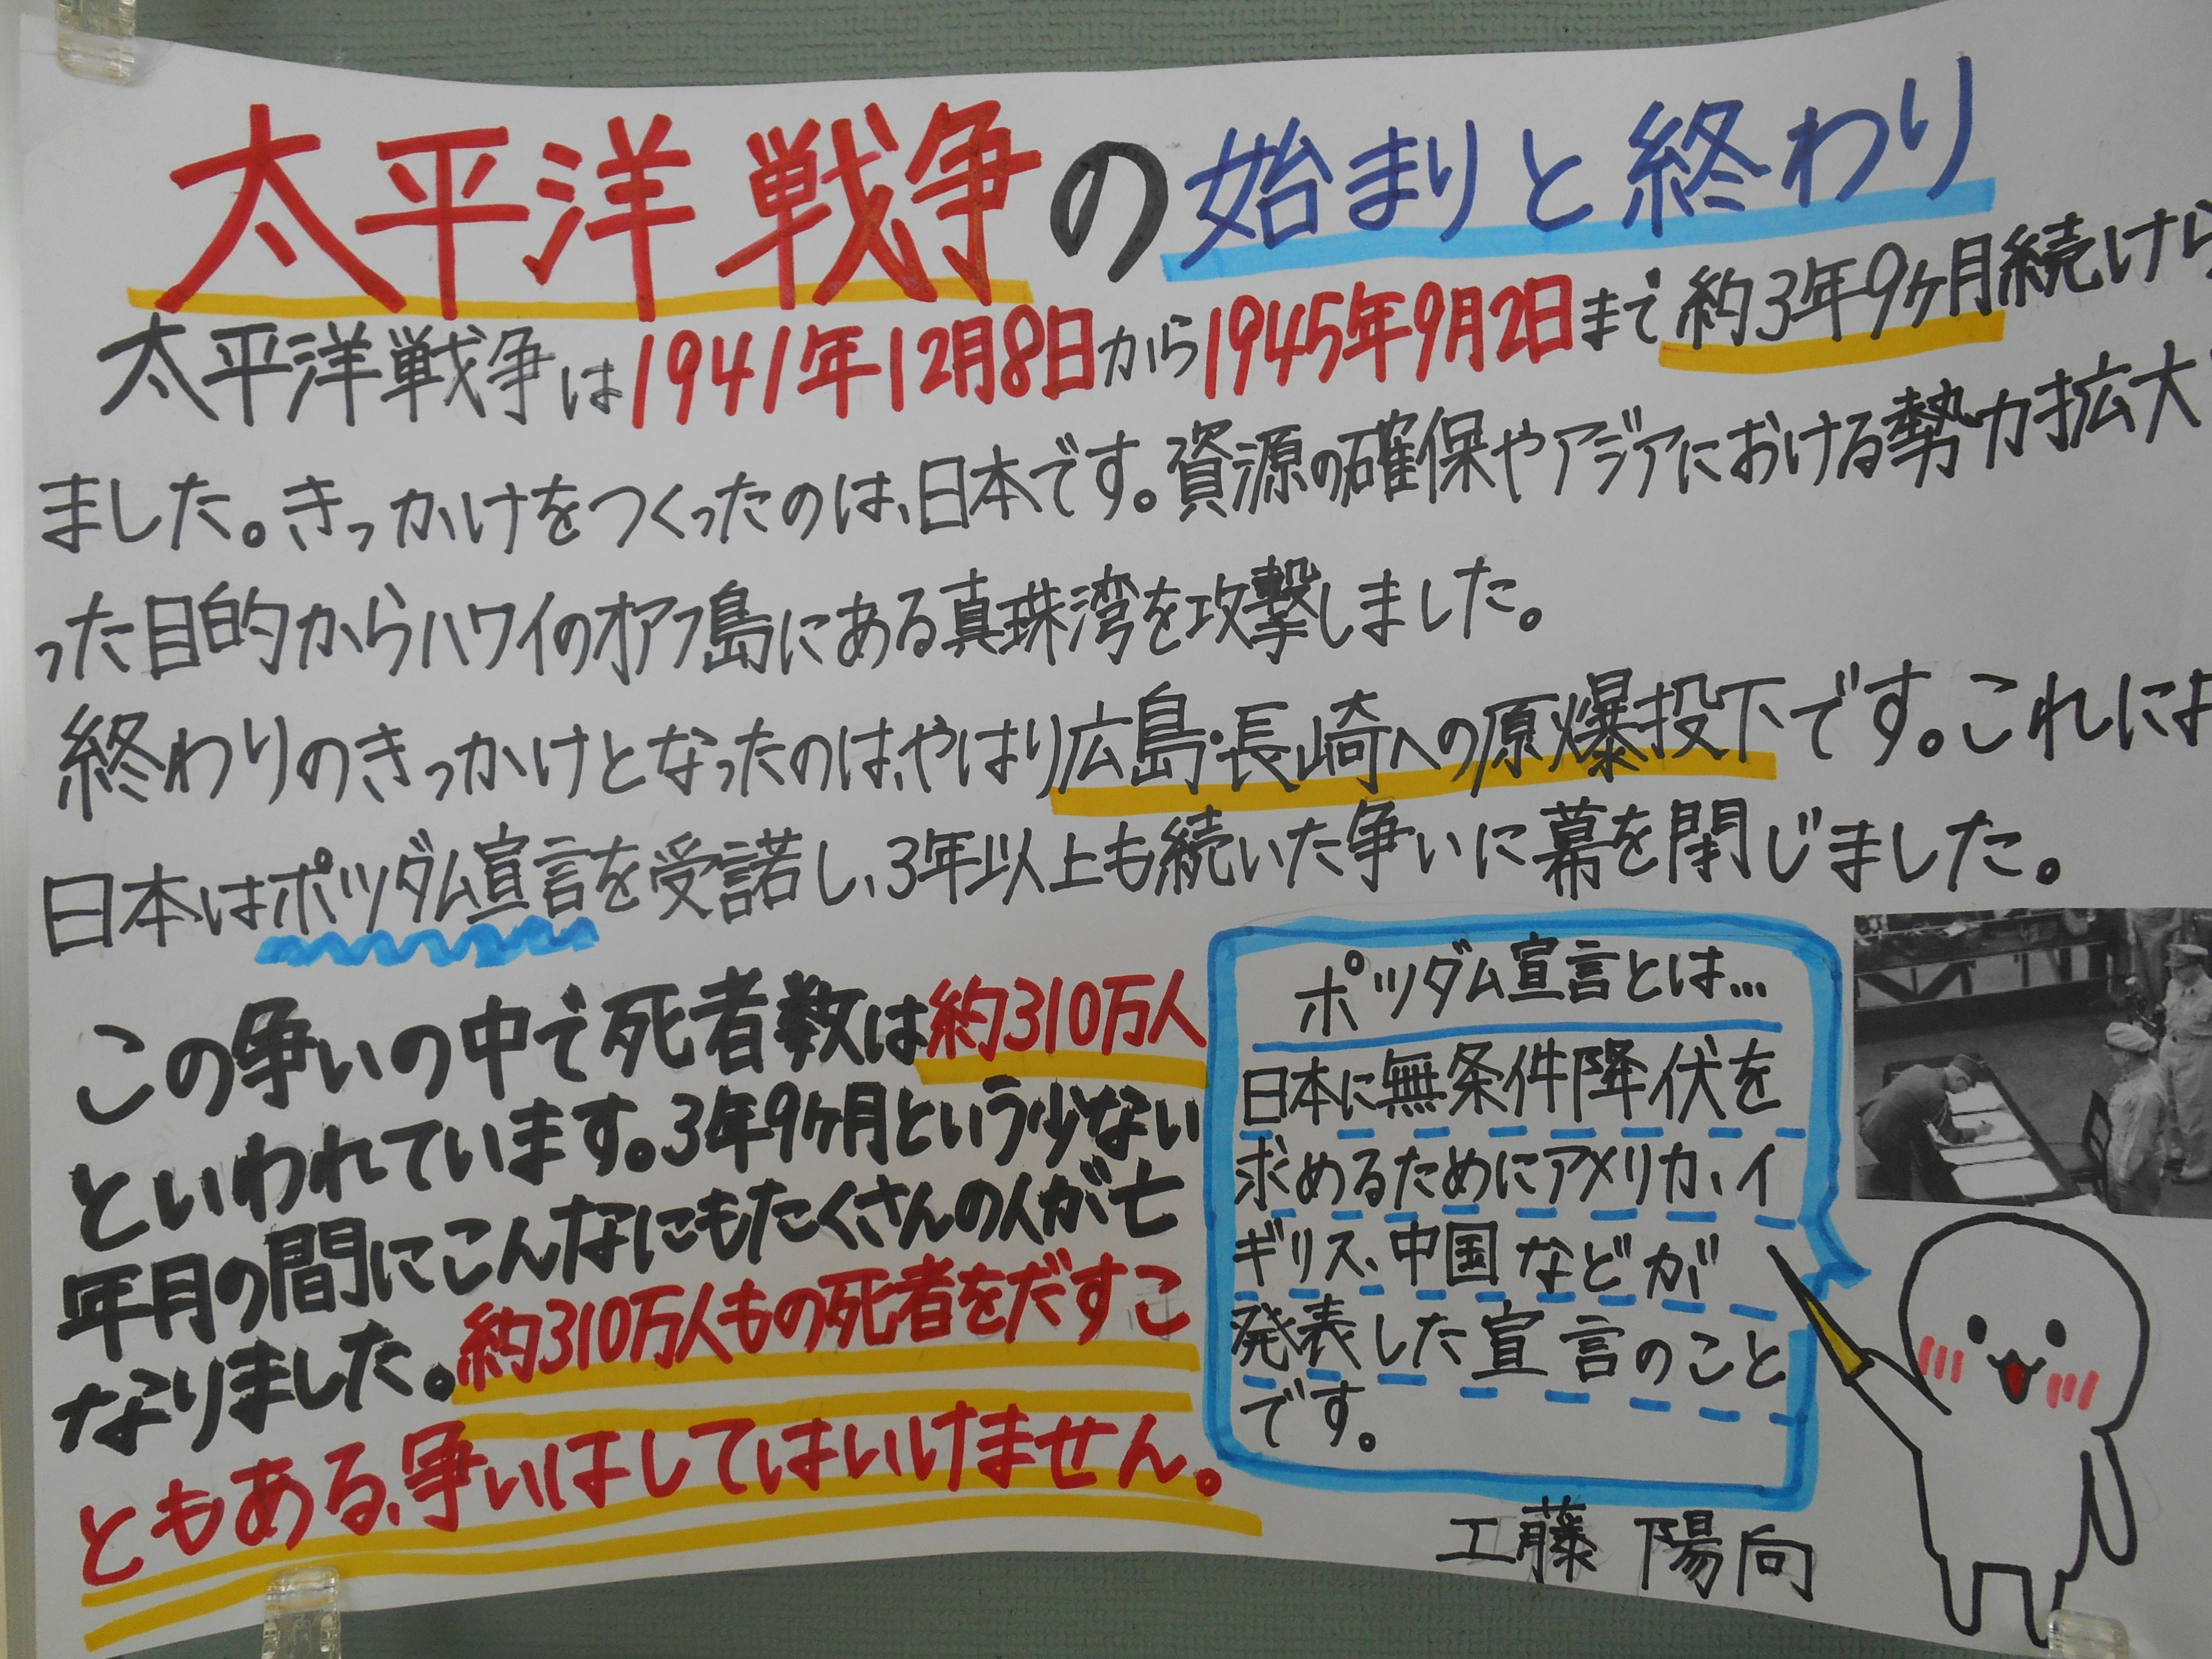 太平洋戦争の始まりと終わり
太平洋戦争は1941年12月8日から1945年9月2日まで約3年9ヶ月続けら
ました。きっかけをつくったのは、日本です。資源の確保やアジアにおける勢力拡大
った目的からハワイのオアフ島にある真珠湾を攻撃しました。
終わりのきっかけとなったのは、やはり広島・長崎への原爆投下です。これによ
日本はポツダム宣言を受諾し、3年以上も続いた争いに幕を閉じました。
この争いの中で死者数は約310万人
といわれています。3年9ヶ月という少ない
年月の間にこんなにもたくさんの人が亡
なりました。約310万人もの死者をだすこ
ともある、争いはしてはいけません。
ポツダム宣言とは…
日本に無条件降伏を
求めるためにアメリカ、イ
ギリス、中国などが
発表した宣言のこと
です。
工藤 陽向